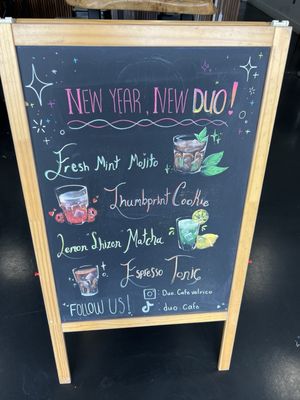 New Year, New Duo!
Fresh Mint Mojito
Thumbprint Cookie
Lemon Shizon Matcha
Espresso Tonic
Follow Us!
Duo.Cafe.valrico
duo.Cafe